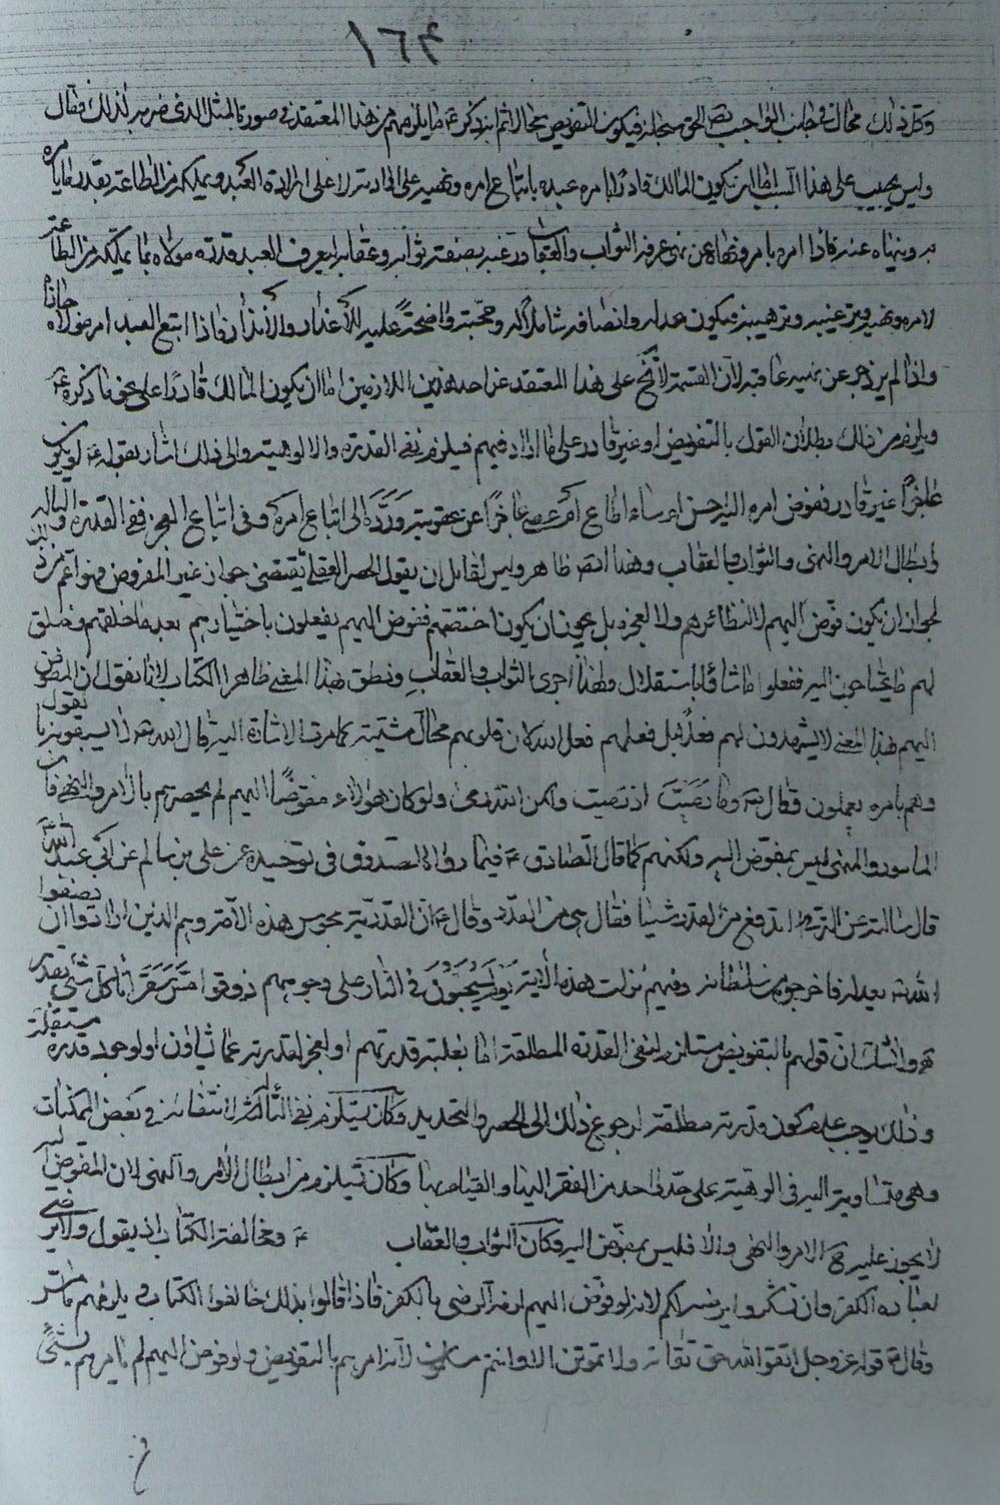 ١٦٤
وكل ذلك محال في جانب الواجب الحق سبحانه فيكون التفويض محالا ثم انه ذكر ع ما يلزمهم من هذا المعتقد في صورة المثل الذي ضربه لذلك فقال
وليس يجب على هذا السبب اما ان يكون المالك قادرا يامره عبده باتباع امره ونهيه على ارادته لا على ارادة العبد ويملكه من الطاقة بقدر ما يامره
به وينهاه عنه فاذا امره بامر ونهاه عن نهي عرفه الثواب والعقاب ورغبه بصفة ثوابه وعقابه ليعرف العبد قدرة مولاه بما يملكه من الطاقة
لامره ونهيه وترغيبه وترهيبه فيكون عدله وانصافه شاملا له وحجته واضحة عليه للأعذار والأنذار فاذا اتبع العبد امر مولاه جازاه
واذا لم يزدجر عن نهيه عاقبه لان القسمة لا تخ على هذا المعتقد عن احد هذين اللازمين اما ان يكون المالك قادرا على نحو ما ذكره ع
ويلزم من ذلك بطلان القول بالتفويض او غير قادر على ما اراد فيهم فيلزم نفي القدرة والالوهية والى ذلك اشار بقوله ع او يكون
عاجزا غير قادر ففوض امره اليه احسن ام ساء اطاع ام عصى عاجزا عن عقوبته ورده الى اتباع امره وفي اثبات العجز نفي القدرة والتاله
وابطال الامر والنهي والثواب والعقاب وهذا ايضا ظاهر وليس لقائل ان يقول الحصر العقلي يقتضي جواز غير المفروض فهو اعم من ذلك
لجواز ان يكون فوض اليهم لا لتظاهرهم ولا لعجزه بل يجوز ان يكون اختصهم ففوض اليهم يفعلون باختيارهم بعد ما خلقهم وخلق
لهم ما يحتاجون اليه ففعلوا ما شاؤا باستقلال ولهذا اجرى الثواب والعقاب ونطق بهذا المعنى ظاهر الكتاب لانا نقول ان المفوض
اليهم بهذا المعنى لا يشهدون لهم فعلا بل فعلهم فعل الله لان قلوبهم محال مشيته كما مرت الاشارة اليه قال الله تعالى لا يسبقونه بالقول
وهم بامره يعملون وقال تع وما رميت اذ رميت ولكن الله رمى ولو كان هؤلاء مفوضا اليهم لم يحصرهم بالامر والنهي فان
المامور والمنهي ليس بمفوض اليه ولكنهم كما قال الصادق ع فيما رواه الصدوق في توحيده عن علي بن سالم عن ابي عبد الله ع
قال سالته عن الرقى اتدفع من القدر شيئا فقال هي من القدر وقال ع ان القدرية مجوس هذه الامة وهم الذين ارادوا ان يصفوا
الله بعدله فاخرجوه من سلطانه وفيهم نزلت هذه الاية يوم يسحبون في النار على وجوههم ذوقوا مس سقر انا كل شيء خلقناه بقدر
وانت ان قولهم بالتفويض مستلزم لنفي القدرة المطلقة اما بغلبة قدرتهم او لعجز قدرته عما يشاؤن او لوجود قدرة مستقلة
وذلك يوجب عدم كون قدرته مطلقة لرجوع ذلك الى الحصر والتحديد وكان يستلزم نفي التاله لانتفائه في بعض الممكنات
وهي متساوية اليه في الوهيته على حد واحد من الفقر اليها والقيام بها وكان يستلزم من ابطال الامر والنهي لان المفوض اليه
لا يجوز عليه الامر والنهي والا فليس بمفوض اليه وكان الثواب والعقاب ع ومخالفة الكتاب اذ يقول ولا يرضى
لعباده الكفر وان تشكروا يرضه لكم لانه لو فوض اليهم لزمه الرضى بالكفر فاذا قالوا بذلك خالفوا الكتاب ويلزمهم ما مر
وقال ع قوله عز وجل اتقوا الله حق تقاته ولا تموتن الا وانتم مسلمون لانه امرهم بالتقويض ولو فوض اليهم لم يامرهم بشئ
في